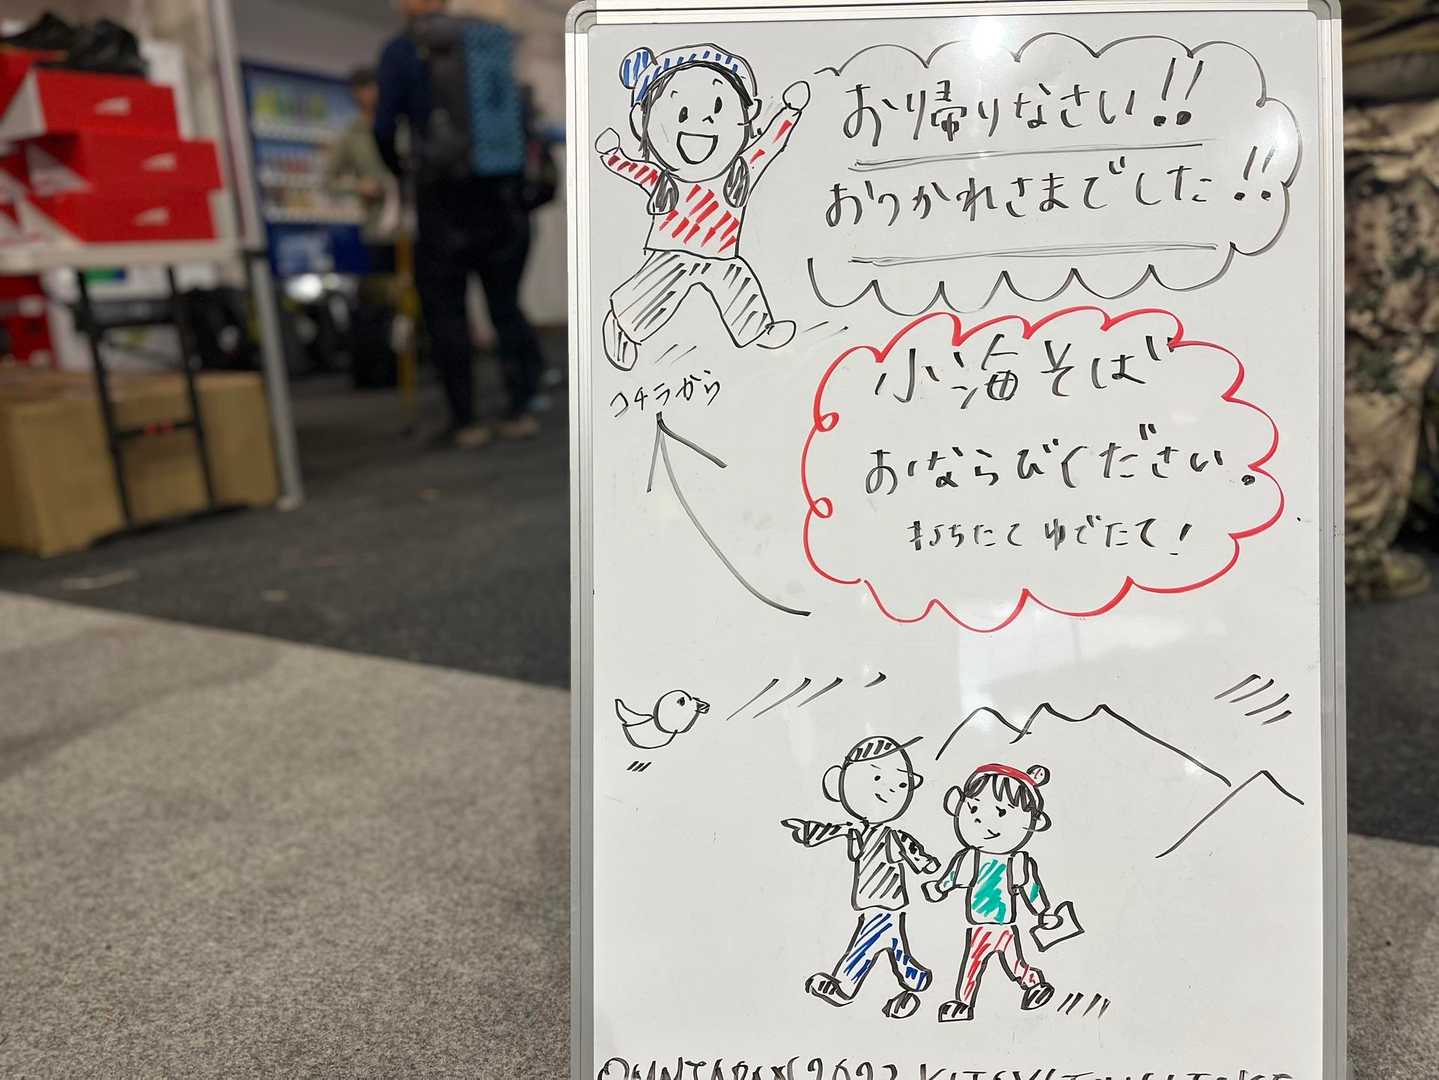 お帰りなさい!!
おつかれさまでした!!
小海そば
おならびください。
打ちたてゆでたて!
コチラから